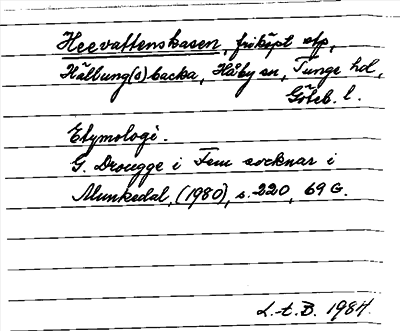 Heevattenskasen, friköpt otp,
Hällung(s)backa, Håby sn, Tunge hd,
Göteb. l.
Etymologi.
G. Drougge i Fem socknar i
Munkedal, (1980), s. 220, 69 G.
L.t.B. 1984.